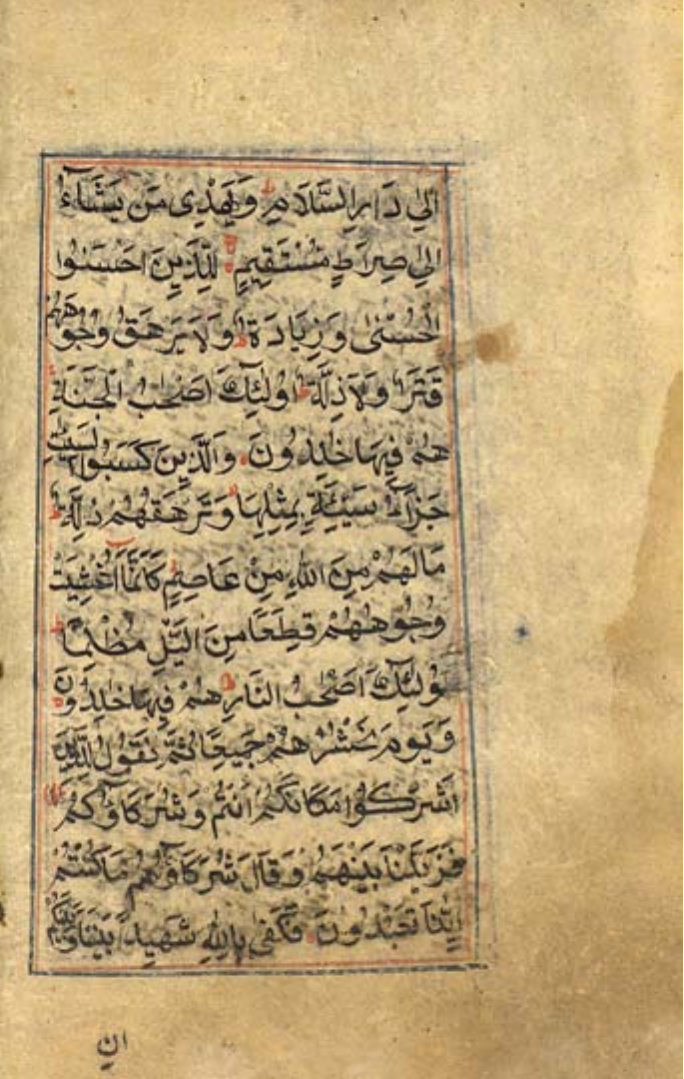 اِلٰى دَارِ السَّلَامِ ؕ وَيَهْدِى مَن يَّشَآءُ
اِلٰى صِرَاطٍ مُّسْتَقِيمٍ لِلَّذِينَ اَحْسَنُوا
الْحُسْنٰى وَزِيَادَةٌ ؕ وَلَا يَرْهَقُ وُجُوهَهُمْ
قَتَرٌ وَلَا ذِلَّةٌ ؕ اُولٰٓئِكَ اَصْحٰبُ الْجَنَّةِ
هُمْ فِيهَا خٰلِدُونَ وَالَّذِينَ كَسَبُوا السَّيِّاٰتِ
جَزَآءُ سَيِّئَةٍ بِمِثْلِهَا وَتَرْهَقُهُمْ ذِلَّةٌ ؕ
مَا لَهُمْ مِنَ اللّٰهِ مِنْ عَاصِمٍ كَاَنَّمَا اُغْشِيَتْ
وُجُوهُهُمْ قِطَعًا مِنَ الَّيْلِ مُظْلِمًا ؕ
اُولٰٓئِكَ اَصْحٰبُ النَّارِ هُمْ فِيهَا خٰلِدُونَ
وَيَوْمَ نَحْشُرُهُمْ جَمِيعًا ثُمَّ نَقُولُ لِلَّذِينَ
اَشْرَكُوا مَكَانَكُمْ اَنْتُمْ وَشُرَكَآؤُكُمْ
فَزَيَّلْنَا بَيْنَهُمْ وَقَالَ شُرَكَآؤُهُمْ مَا كُنْتُمْ
اِيَّانَا تَعْبُدُونَ فَكَفٰى بِاللّٰهِ شَهِيدًا بَيْنَنَا وَبَيْنَكُمْ
اِن